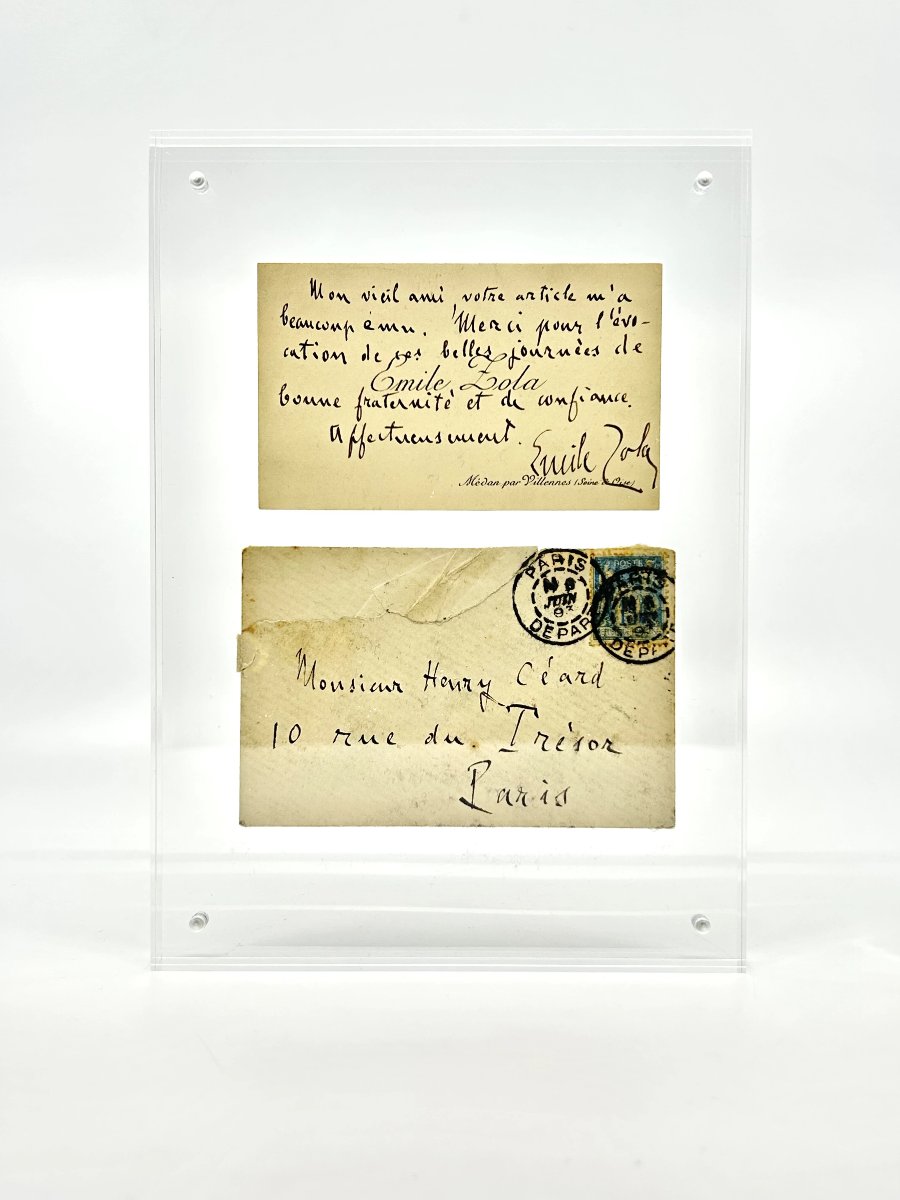 Mon vieil ami, votre article m'a
beaucoup ému. Merci pour l'évo-
cation de ces belles journées de
Emile Zola
bonne fraternité et de confiance.
Affectueusement.
Emile Zola
Médan par Villennes (Seine & Oise)
PARIS
JUIN
93
DEPART
POSTE
PARIS
DEPART
Monsieur Henry Céard
10 rue du Trésor
Paris